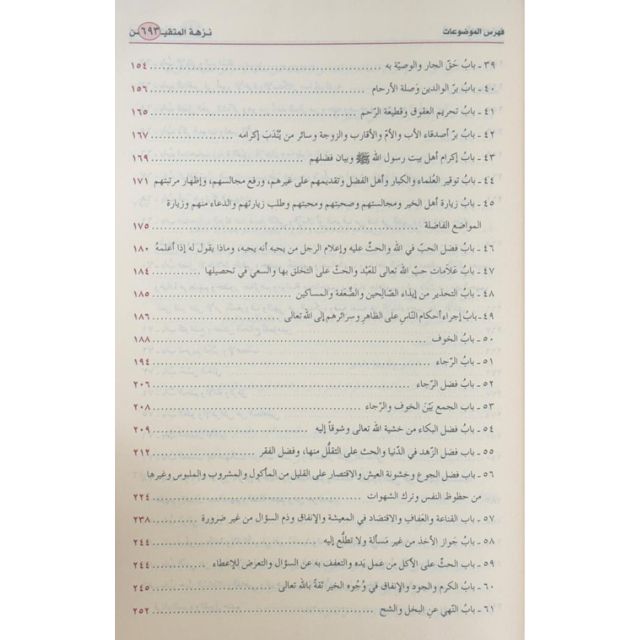 فهرس الموضوعات ٦٩٣ نزهة المتقيـ ـن
٣٩ ـ بابُ حَقّ الجار والوصيّة به ١٥٤
٤٠ ـ بابُ برّ الوالدين وَصلة الأرحام ١٥٦
٤١ ـ بابُ تحريم العقوق وقطيعَة الرّحم ١٦٥
٤٢ ـ بابُ برّ أصدقاء الأب والأمّ والأقارب والزوجة وسائر من يُنْدَبُ إكرامه ١٦٧
٤٣ ـ بابُ إكرام أهل بيت رسول الله ﷺ وبيان فضلهم ١٦٩
٤٤ ـ بابُ توقير العُلماء والكبار وأهل الفضل وتقديمهم على غيرهم، ورفع مجالسهم، وإظهار مرتبتهم ١٧١
٤٥ ـ بابُ زيارة أهل الخير ومجالستهم وصحبتهم ومحبتهم وطلب زيارتهم والدعاء منهم وزيارة
المواضع الفاضلة ١٧٥
٤٦ ـ بابُ فضل الحبّ في الله والحثّ عليه وإعلام الرجل من يحبه أنه يحبه، وماذا يقول له إذا أعلمهُ ١٨٠
٤٧ ـ بابُ عَلامات حبّ الله تعالى للعَبْد والحثّ على التخلق بها والسعي في تحصيلها ١٨٤
٤٨ ـ بابُ التحذير من إيذاء الصّالِحين والضَّعَفة والمساكين ١٨٥
٤٩ ـ بابُ إجراء أحكام النّاس على الظاهر وسرائرهم إلى الله تعالى ١٨٦
٥٠ ـ بابُ الخوف ١٨٨
٥١ ـ بابُ الرّجاء ١٩٤
٥٢ ـ بابُ فضل الرّجاء ٢٠٦
٥٣ ـ بابُ الجمع بَيْنَ الخوف والرّجاء ٢٠٨
٥٤ ـ بابُ فضل البكاء من خشية الله تعالى وشوقاً إليه ٢٠٩
٥٥ ـ بابُ فضل الزّهد في الدّنيا والحث على التقلّل منها، وفضل الفقر ٢١٢
٥٦ ـ باب فضل الجوع وخشونة العيش والاقتصار على القليل من المأكول والمشروب والملبوس وغيرها
من حظوظ النفس وترك الشهوات ٢٢٤
٥٧ ـ بابُ القناعة والعَفافِ والاقتصاد في المعيشة والإنفاق وذم السؤال من غير ضرورة ٢٣٨
٥٨ ـ بابُ جَواز الأخذ من غير مَسألة ولا تطلُّع إليه ٢٤٤
٥٩ ـ بابُ الحثّ على الأكل من عَمل يَده والتعفف به عن السؤال والتعرض للإعطاء ٢٤٤
٦٠ ـ بابُ الكرم والجود والإنفاق في وُجُوه الخير ثقةً بالله تعالى ٢٤٥
٦١ ـ بابُ النّهي عن البخل والشح ٢٥٢